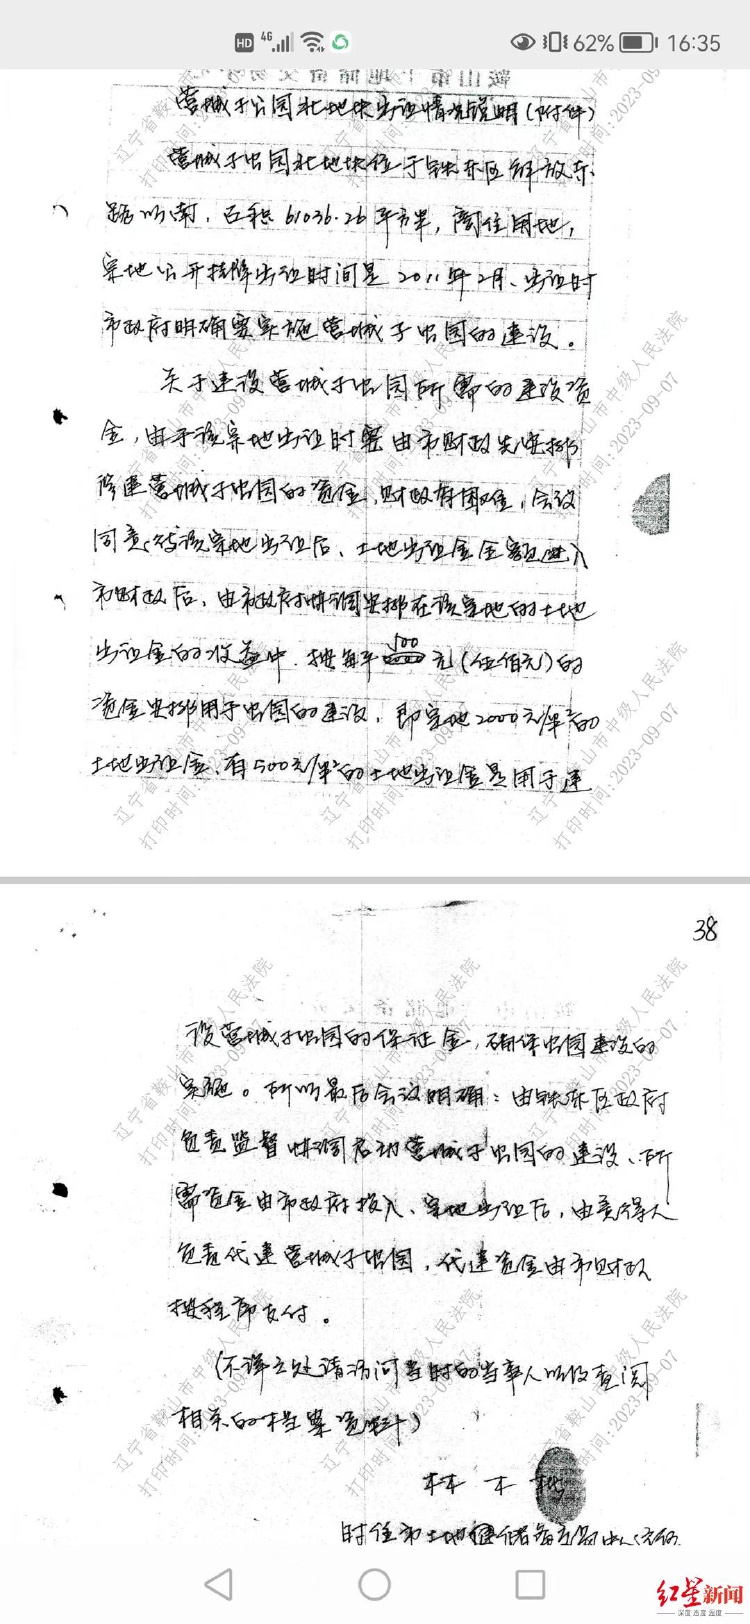 HD 4G 62% 16:35
营城子公园北地块出让情况说明（附件）
营城子公园北地块位于铁东区解放东
路以南，面积61036.26平方米，商住用地，
宗地公开挂牌出让时间是2011年2月、出让时
市政府明确要实施营城子公园的建设。
关于建设营城子公园所需的建设资
金，由于该宗地出让时要由市财政先安排
修建营城子公园的资金，财政有困难，会议
同意：待该宗地出让后、土地出让金全额进入
市财政后，由市政府协调安排在该宗地的土地
出让金的收益中，按每平500元（伍佰元）的
资金安排用于公园的建设，即宗地2000元/米²的
土地出让金，有500元/米²的土地出让金是用于建
38
设营城子公园的保证金，确保公园建设的
实施。所以最后会议明确：由铁东区政府
负责监督协调启动营城子公园的建设、所
需资金由市政府投入、宗地出让后，由竞得人
负责代建营城子公园，代建资金由市财政
按程序支付。
（不详之处请访问当时的当事人以及查阅
相关的档案资料）
林木
时任市土地储备交易中心
辽宁省鞍山市中级人民法院
打印时间：2023-09-07
红星新闻
深度 态度 温度